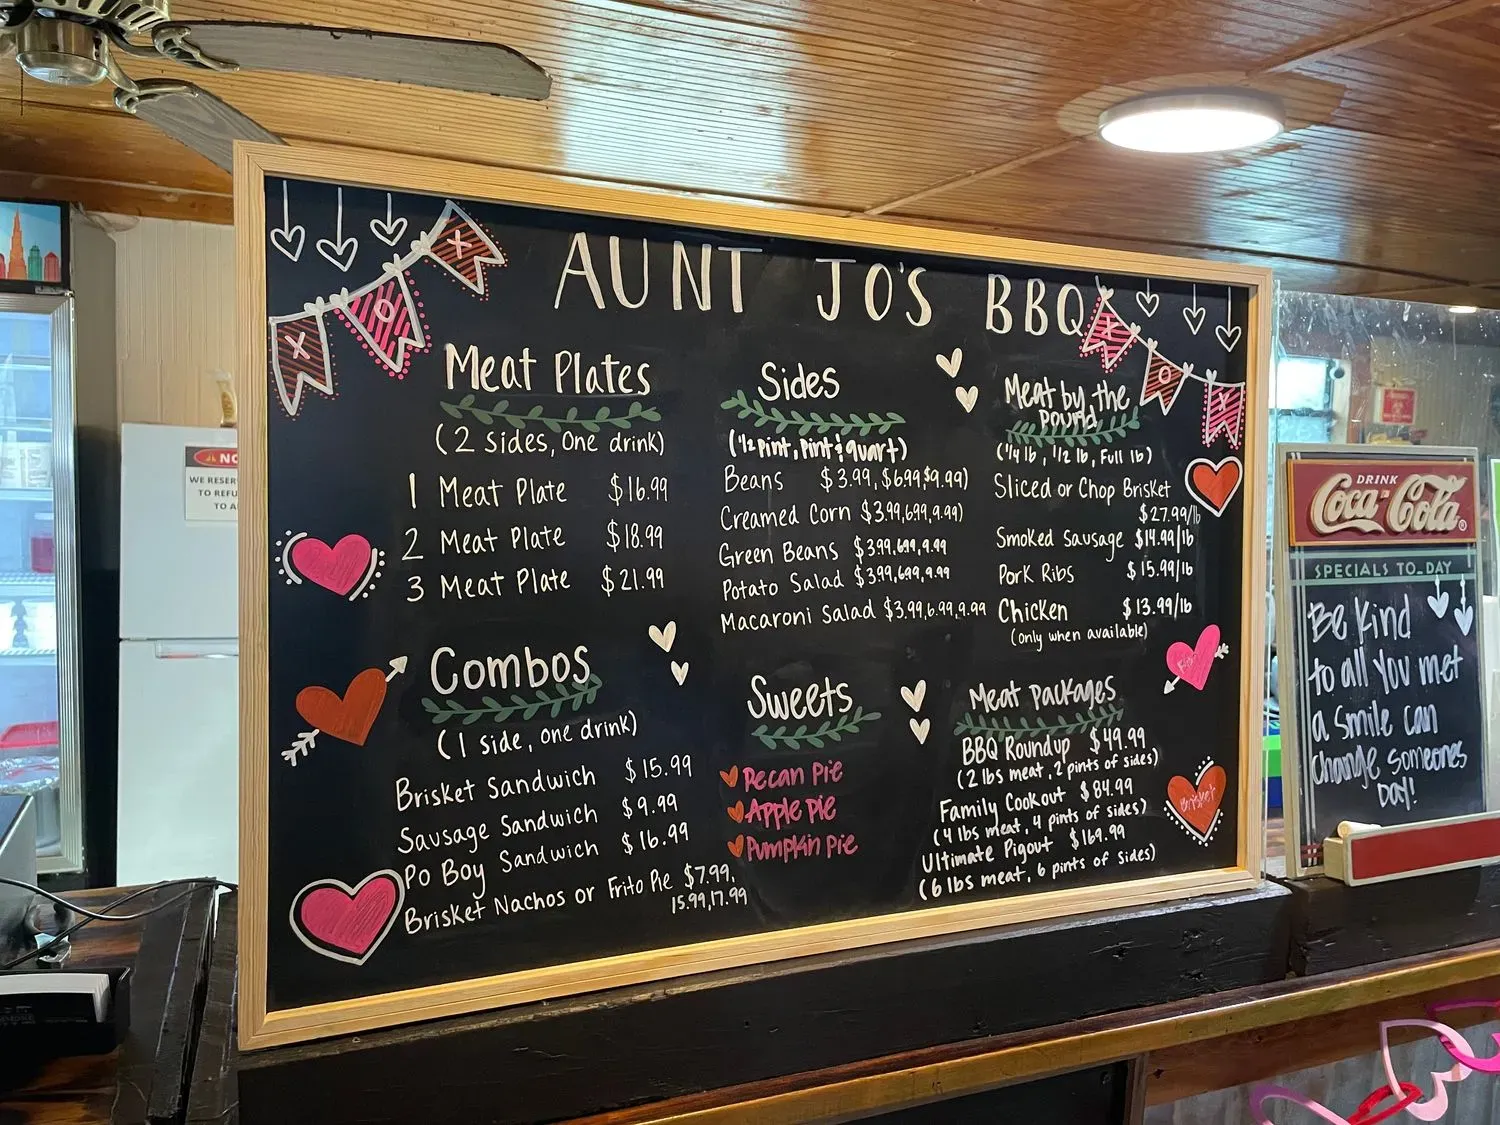 AUNT JO'S BBQ
X O X
X O X
Meat Plates
(2 sides, One drink)
1 Meat Plate $16.99
2 Meat Plate $18.99
3 Meat Plate $21.99
Combos
(1 side, one drink)
Brisket Sandwich $15.99
Sausage Sandwich $9.99
Po Boy Sandwich $16.99
Brisket Nachos or Frito Pie $7.99,
15.99,17.99
Sides
(1/2 pint, Pint & quart)
Beans $3.99, $6.99 $9.99)
Creamed Corn $3.99,6.99,9.99)
Green Beans $3.99,6.99,9.99
Potato Salad $3.99,6.99,9.99
Macaroni Salad $3.99,6.99,9.99
Sweets
Pecan Pie
Apple pie
Pumpkin Pie
Meat by the
Pound
(1/4 lb, 1/2 lb, Full lb)
Sliced or Chop Brisket
$27.99/lb
Smoked Sausage $14.99/lb
Pork Ribs $15.99/lb
Chicken $13.99/lb
(only when available)
Meat packages
BBQ Roundup $49.99
(2 lbs meat, 2 pints of sides)
Family Cookout $84.99
(4 lbs meat, 4 pints of sides)
Ultimate Pigout $169.99
(6 lbs meat, 6 pints of sides)
Brisket
NO
WE RESER
TO REFU
TO A
DRINK
Coca-Cola®
SPECIALS TO-DAY
Be Kind
to all You met
a Smile can
change someones
Day!